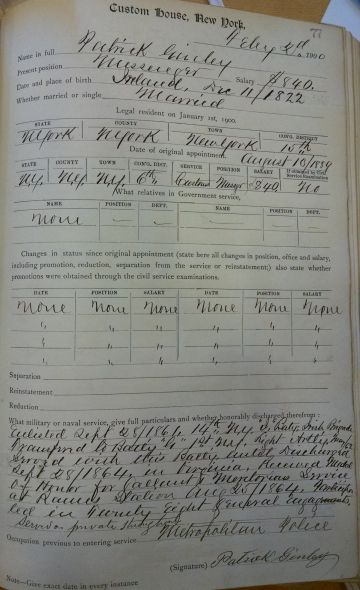 77
Custom House, New York,
Feby 2d, 1900
Name in full Patrick Ginley
Present position Messenger Salary $840.
Date and place of birth Ireland, Dec 11/1822
Whether married or single Married
Legal resident on January 1st, 1900.
STATE COUNTY TOWN CONG. DISTRICT
N York N York New York 15th
Date of original appointment, August 10/1889
STATE COUNTY TOWN CONG. DIST. SERVICE POSITION SALARY If admitted by Civil Service Examination
N.Y. N.Y. N.Y. 6th Customs Messgr 840 No
What relatives in Government service,
NAME POSITION DEPT. NAME POSITION DEPT.
None — — — — —
Changes in status since original appointment (state here all changes in position, office and salary,
including promotion, reduction, separation from the service or reinstatement); also state whether
promotions were obtained through the civil service examinations.
DATE POSITION SALARY DATE POSITION SALARY
None None None None None None
" " " " " "
" " " " " "
" " " " " "
Separation
Reinstatement
Reduction
What military or naval service, give full particulars and whether honorably discharged therefrom:
Enlisted Sept 28/1861, 14th N.Y. Irish Brigade
Transferred to Batty "G" 1st N.Y. Light Arty
Served with this Batty until Discharged
Sept 28/1864, in Virginia, Received Medal
of Honor for Gallant & Meritorious Service
at Reams Station Aug 25/1864, Participa
ted in twenty eight General engagements,
Served as private throughout
Metropolitan Police
Occupation previous to entering service
(Signature) Patrick Ginley
Note—Give exact date in every instance